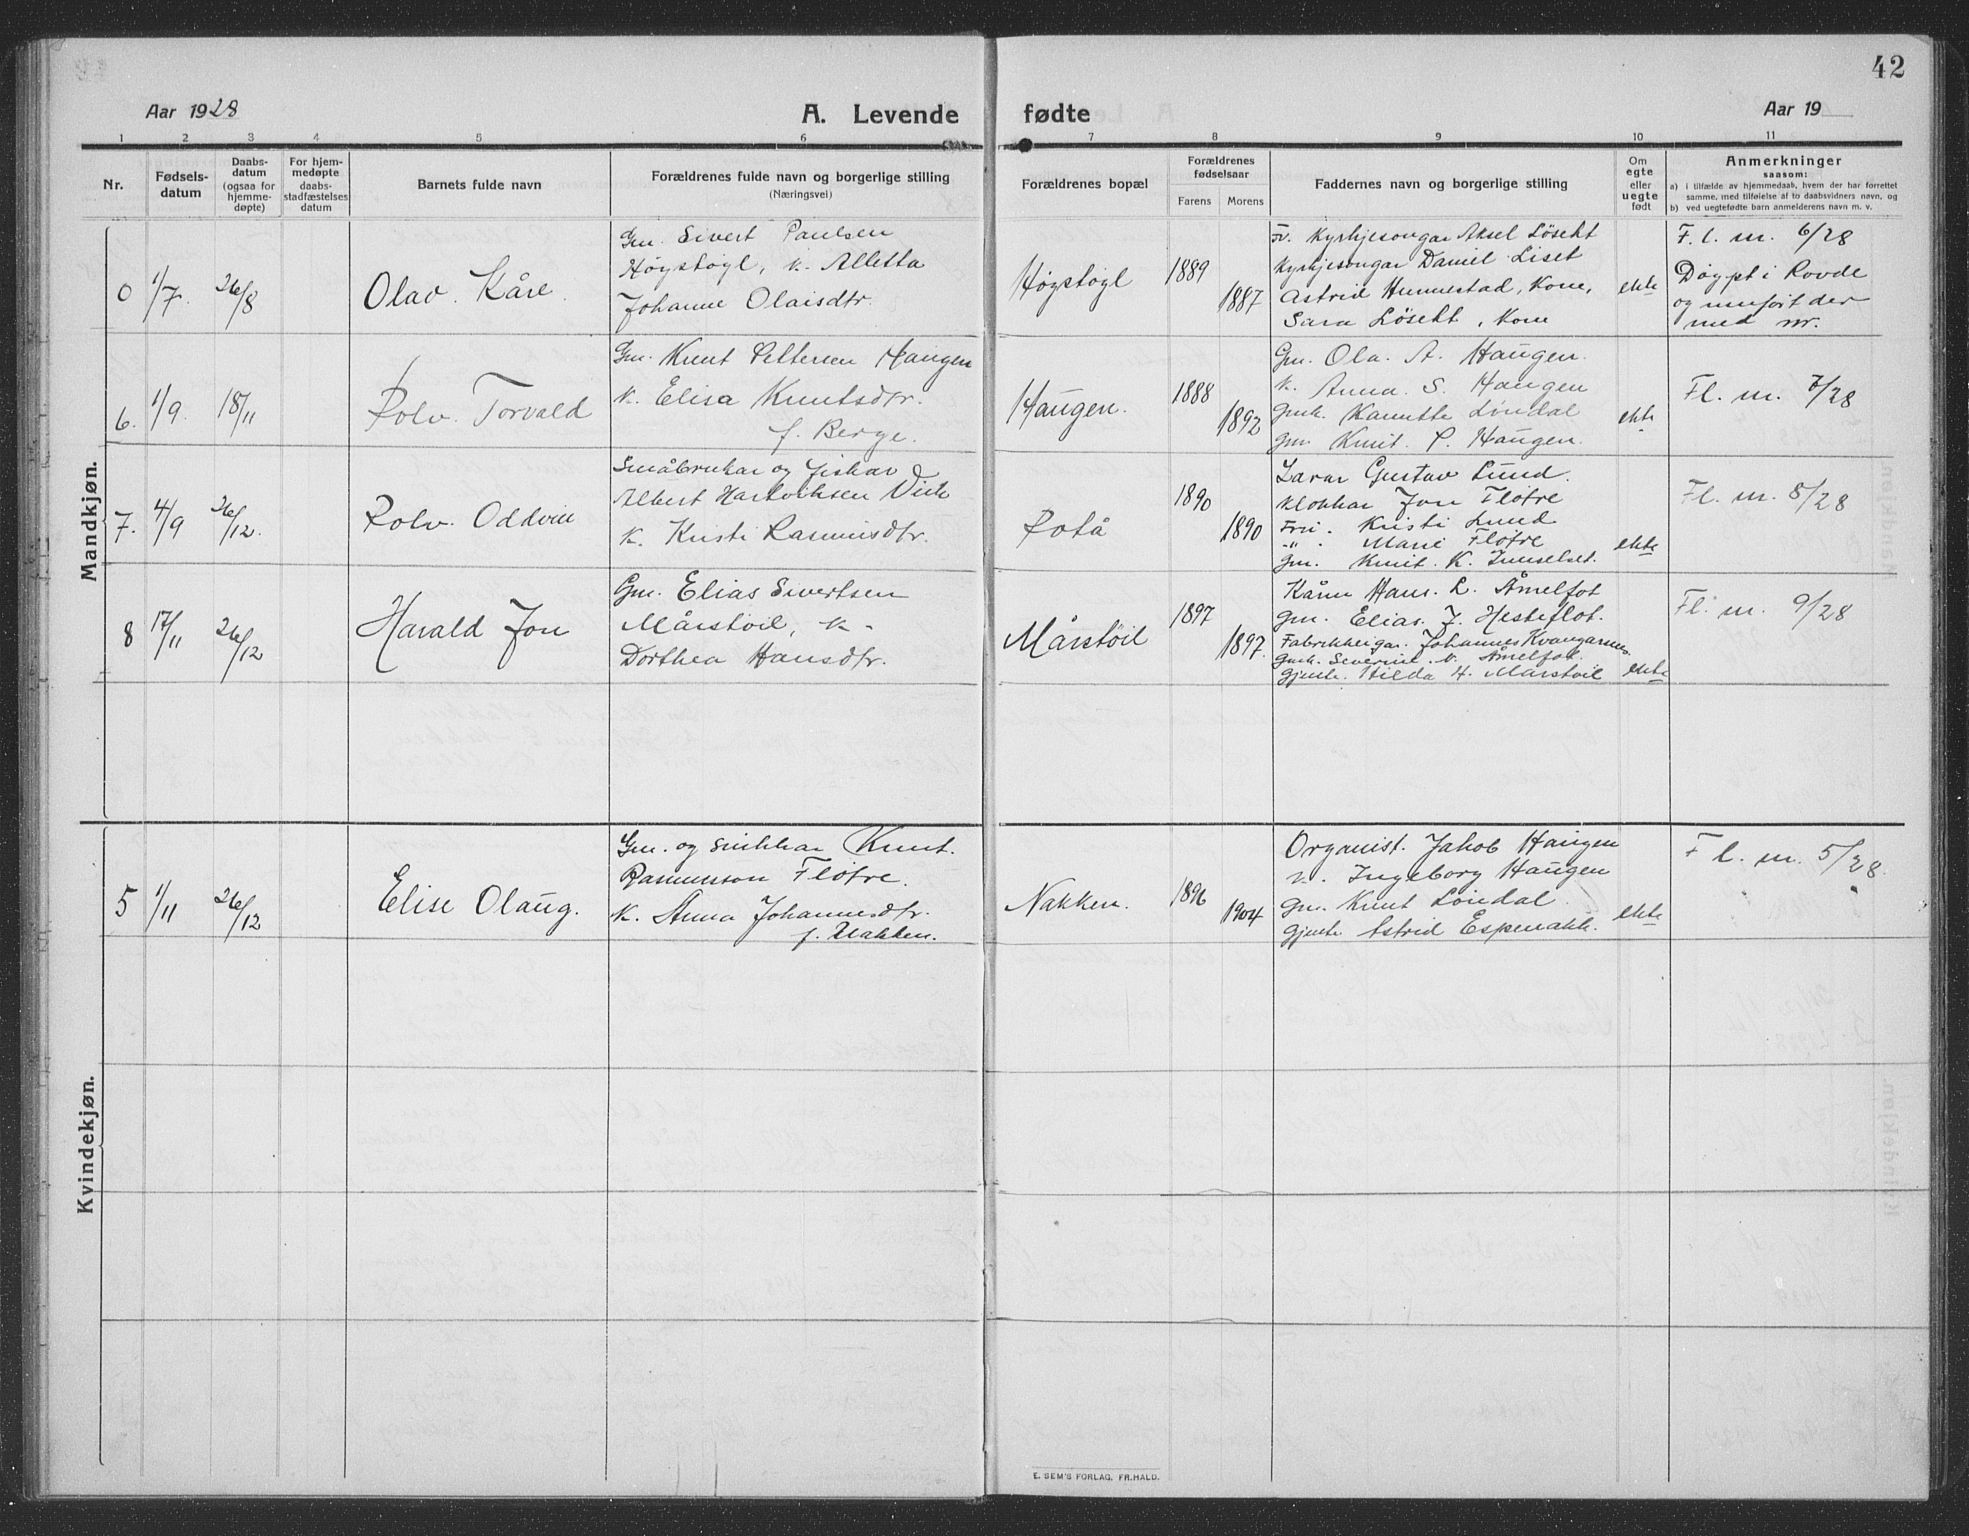 42
Aar 1928
A. Levende
fødte
Aar 19
1 2 3 4 5 6 7 8 9 10 11
Nr.
Fødsels-
datum
Daabs-
datum
(ogsaa for
hjemme-
døpte)
For hjem-
medøpte
daabs-
stadfæstelses
datum
Barnets fulde navn
Forældrenes fulde navn og borgerlige stilling
(Næringsvei)
Forældrenes bopæl
Forældrenes
fødselsaar
Farens Morens
Faddernes navn og borgerlige stilling
Om
egte
eller
uegte
født
Anmerkninger
saasom:
a) i tilfælde av hjemmedaab, hvem der har forrettet
samme, med tilføielse af to daabsvidners navn, og
b) ved uegtefødte barn anmelderens navn m. v.
Mandkjøn.
0
1/7
26/8
Olav Kåre
Gm. Sivert Paulsen
Høgstøgl, k. Alletta
Johanne Olaisdtr.
Høgstøgl
1889
1887
Fv. Kyrkjesongar Aksel Løseth
Kyrkjesongar Daniel Liset
Astrid Hunnestad, Kone,
Sara Løseth, Kone
ekte
F. l. m. 6/28
Døypt i Rovde
og innført der
med nr.
6.
1/9
18/11
Rolv Torvald
Gm. Knut Pettersen Haugen
k. Elisa Knutsdtr.
f. Berge.
Haugen.
1888
1892
Gm. Ola. A. Haugen.
k. Anna S. Haugen
Gmk. Kanutte Løndal
gm. Knut. P. Haugen.
ekte
Fl. m. 7/28
7.
4/9
26/12.
Rolv Oddvin
Småbrukar og fiskar
Albert Hartviksen Vik
k. Kristi Rasmusdtr.
Rotå
1890
1890
Lærar Gustav Lund.
Klokkar Jon Fløtre
Fru. Kristi Lund
" . Marie Fløtre
Gm. Knut. K. Innselset.
ekte
Fl. m. 8/28
8
17/11
26/12
Harald Jon
Gm. Elias Sivertsen
Mårstøil, k.
Dorthea Hansdtr.
Mårstøil
1897
1897.
Kårm Hans. L. Åmelfot
gm. Elias. J. Hesteflot.
Fabrikkeigar. Johannes Kvangarsnes
Gmk. Severine. K. Åmelfot.
Gjente. Hilda H. Mårstøil
ekte
Fl. m. 9/28
Kvindekjøn.
5
1/11
26/12
Elise Olaug.
Gm. og snikkar Knut.
Rasmusson Fløtre.
k. Anna Johannesdtr.
f. Nakken.
Nakken.
1896
1904
Organist. Jakob Haugen
k. Ingeborg Haugen
Gm. Knut Løndal.
Gjente Astrid Espenakk.
ekte
Fl. m. 5/28.
E. SEM'S FORLAG, FR.HALD.